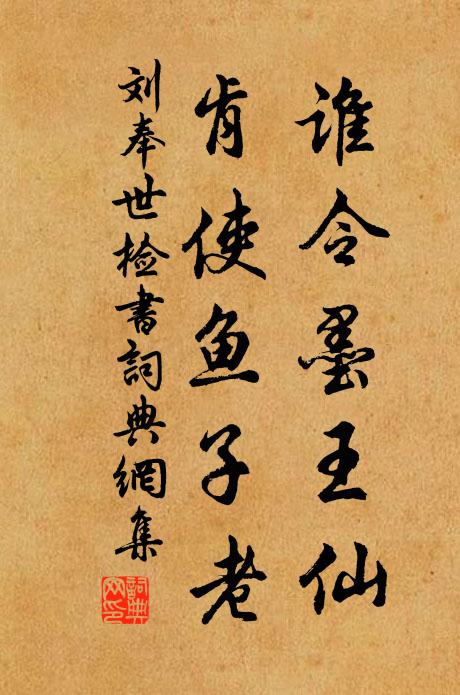 谁令墨王仙
肯使鱼子老
刘奉世检書詞典網集
詞典网印